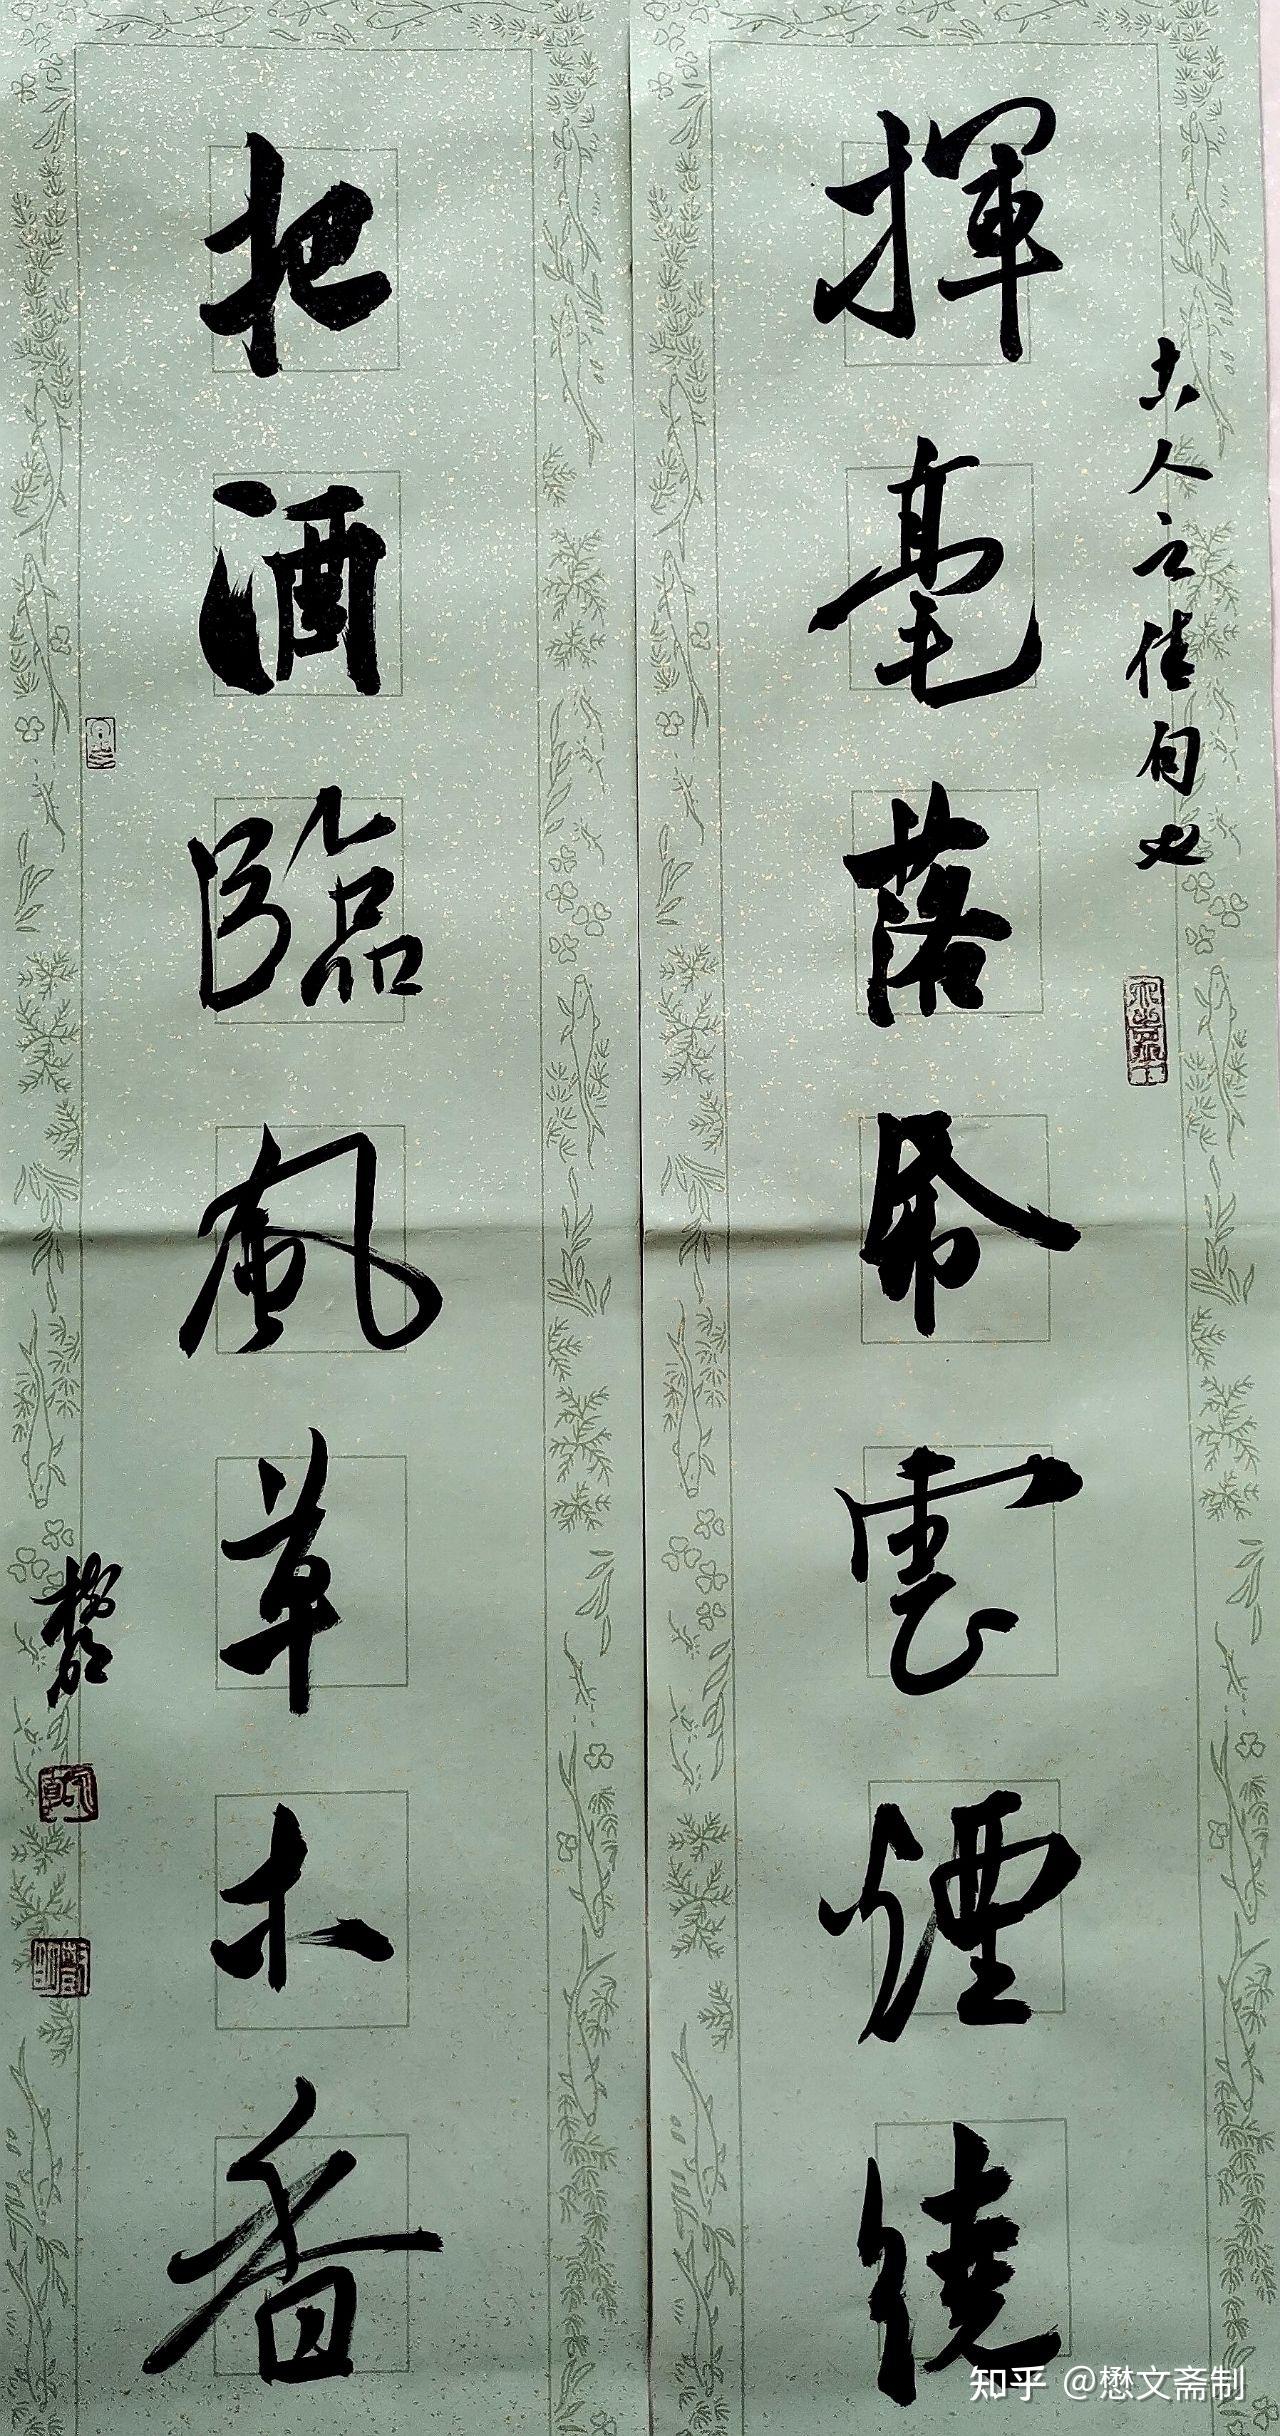 古人之佳句也
揮毫落帋雲煙繞
把酒臨風草木香
知乎 @懋文斋制